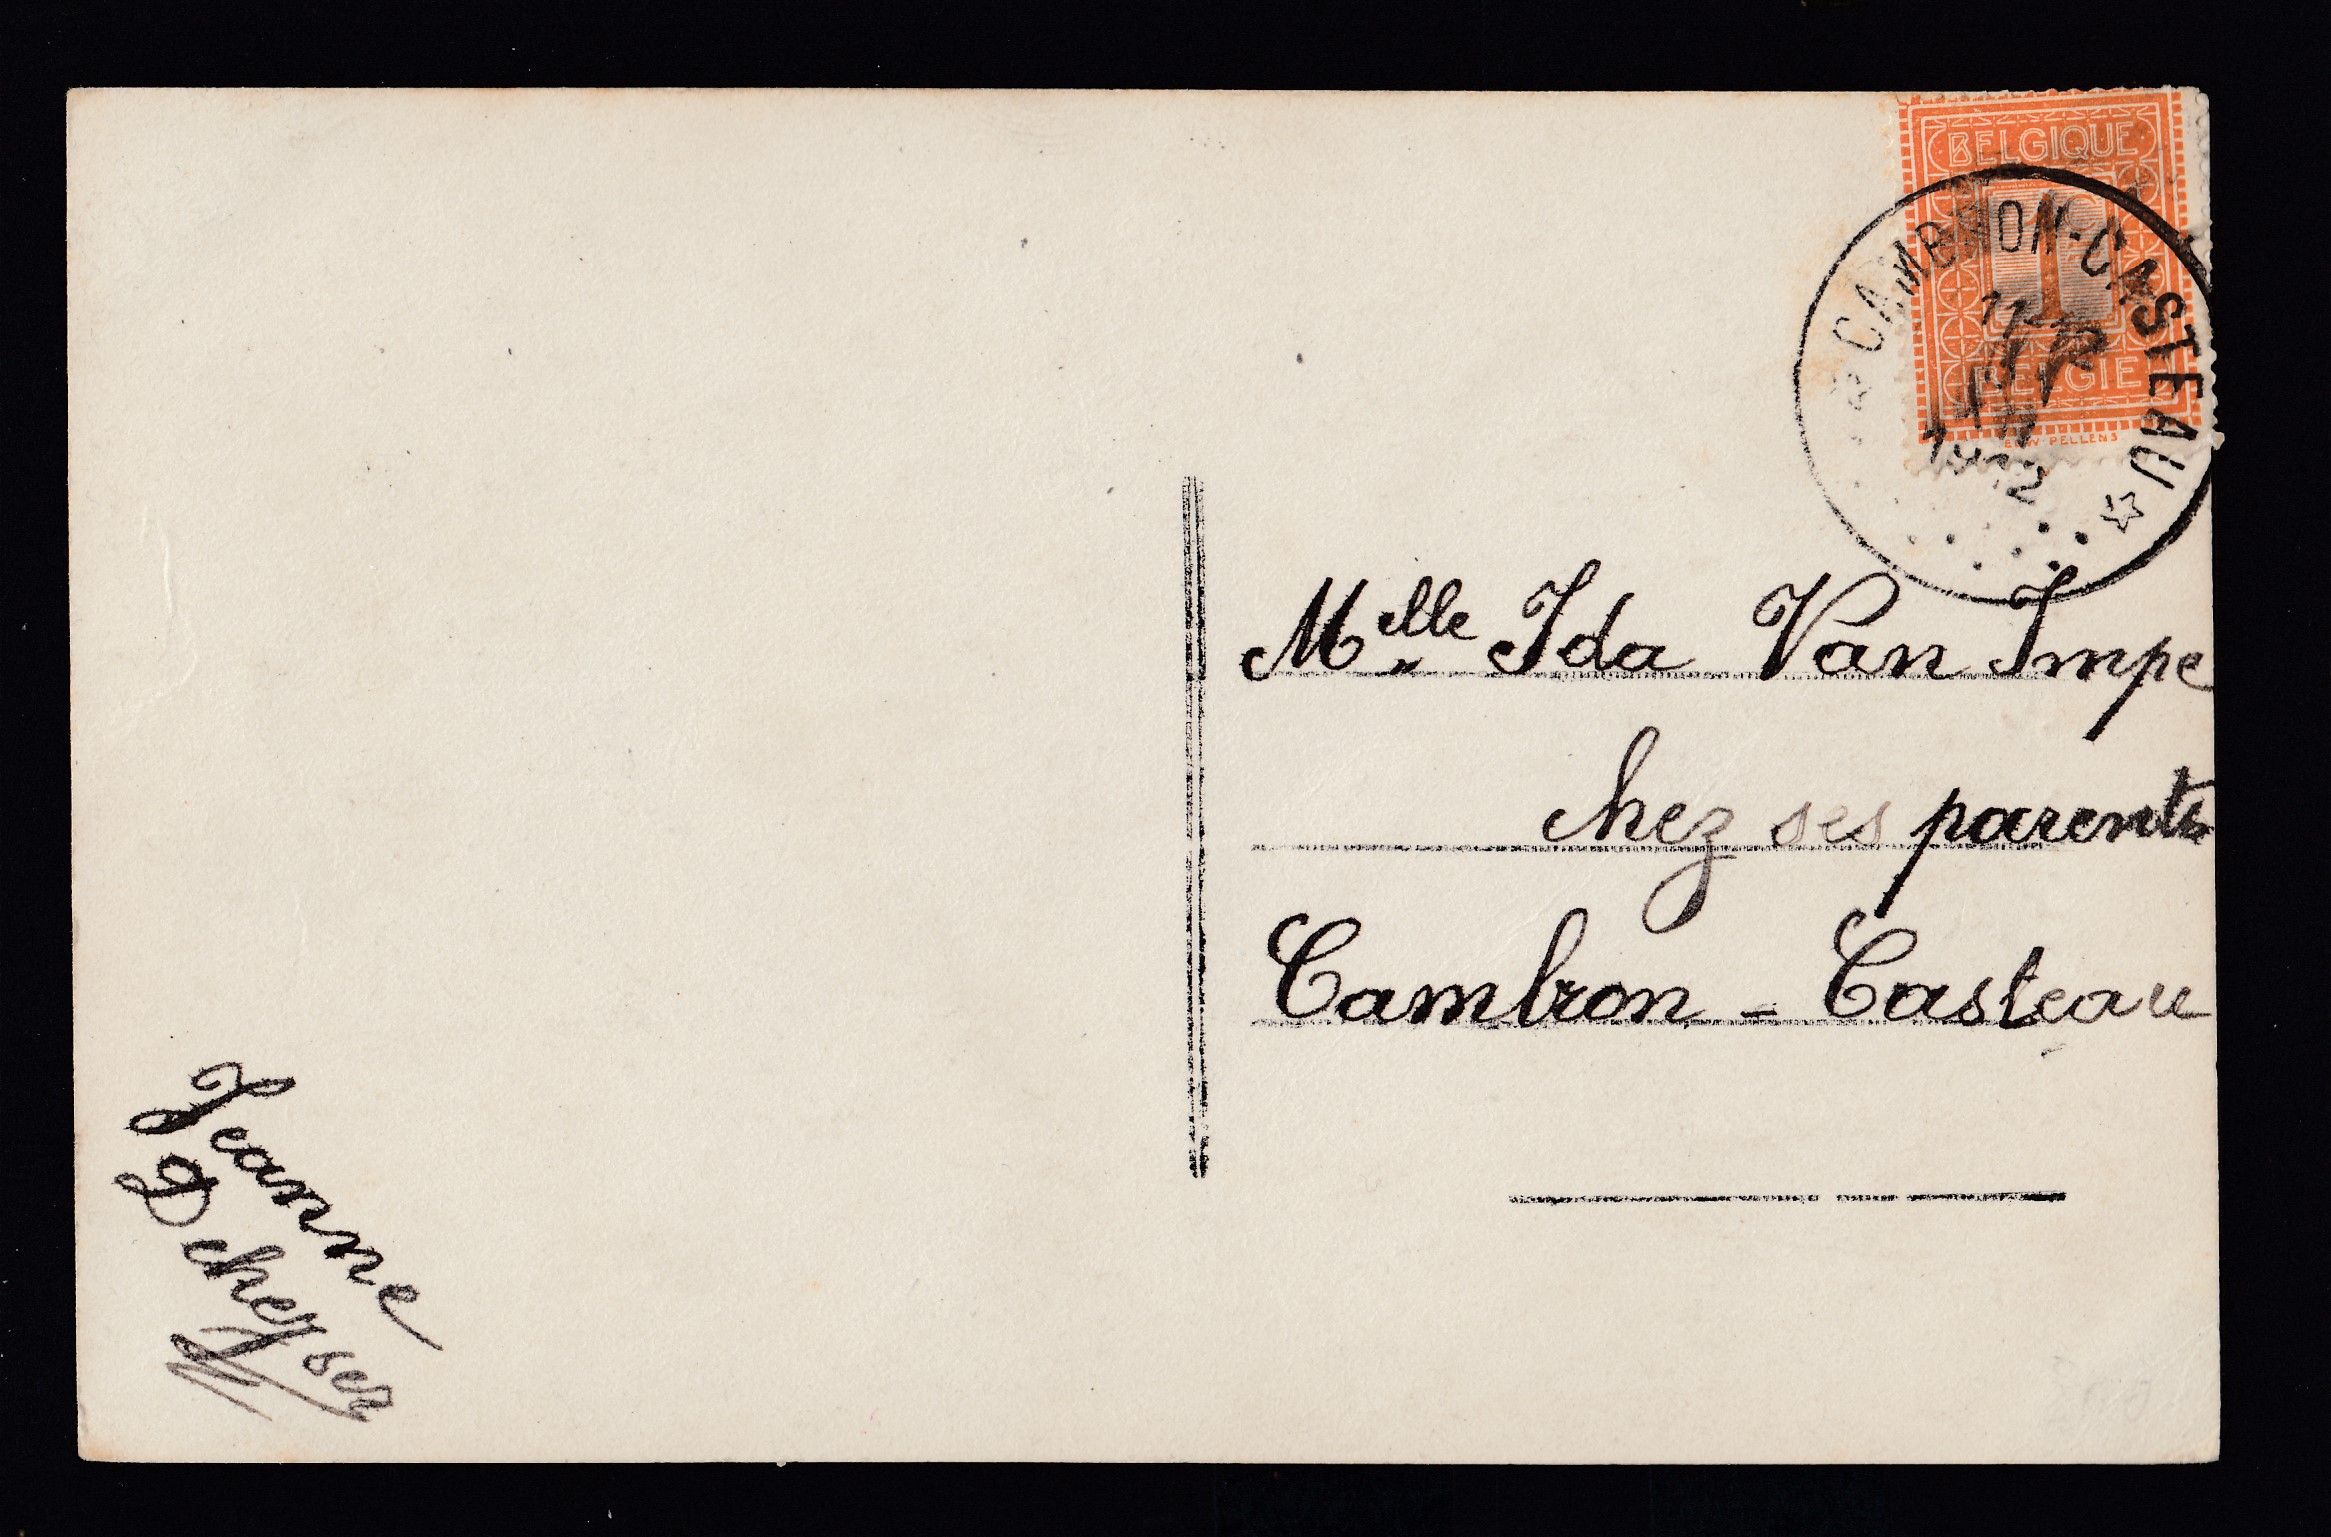 BELGIQUE
1
BELGIË
EDW PELLENS
CAMBRON-CASTEAU
1912
Melle Ida Van Impe
chez ses parents
Cambron - Casteau
Jeanne